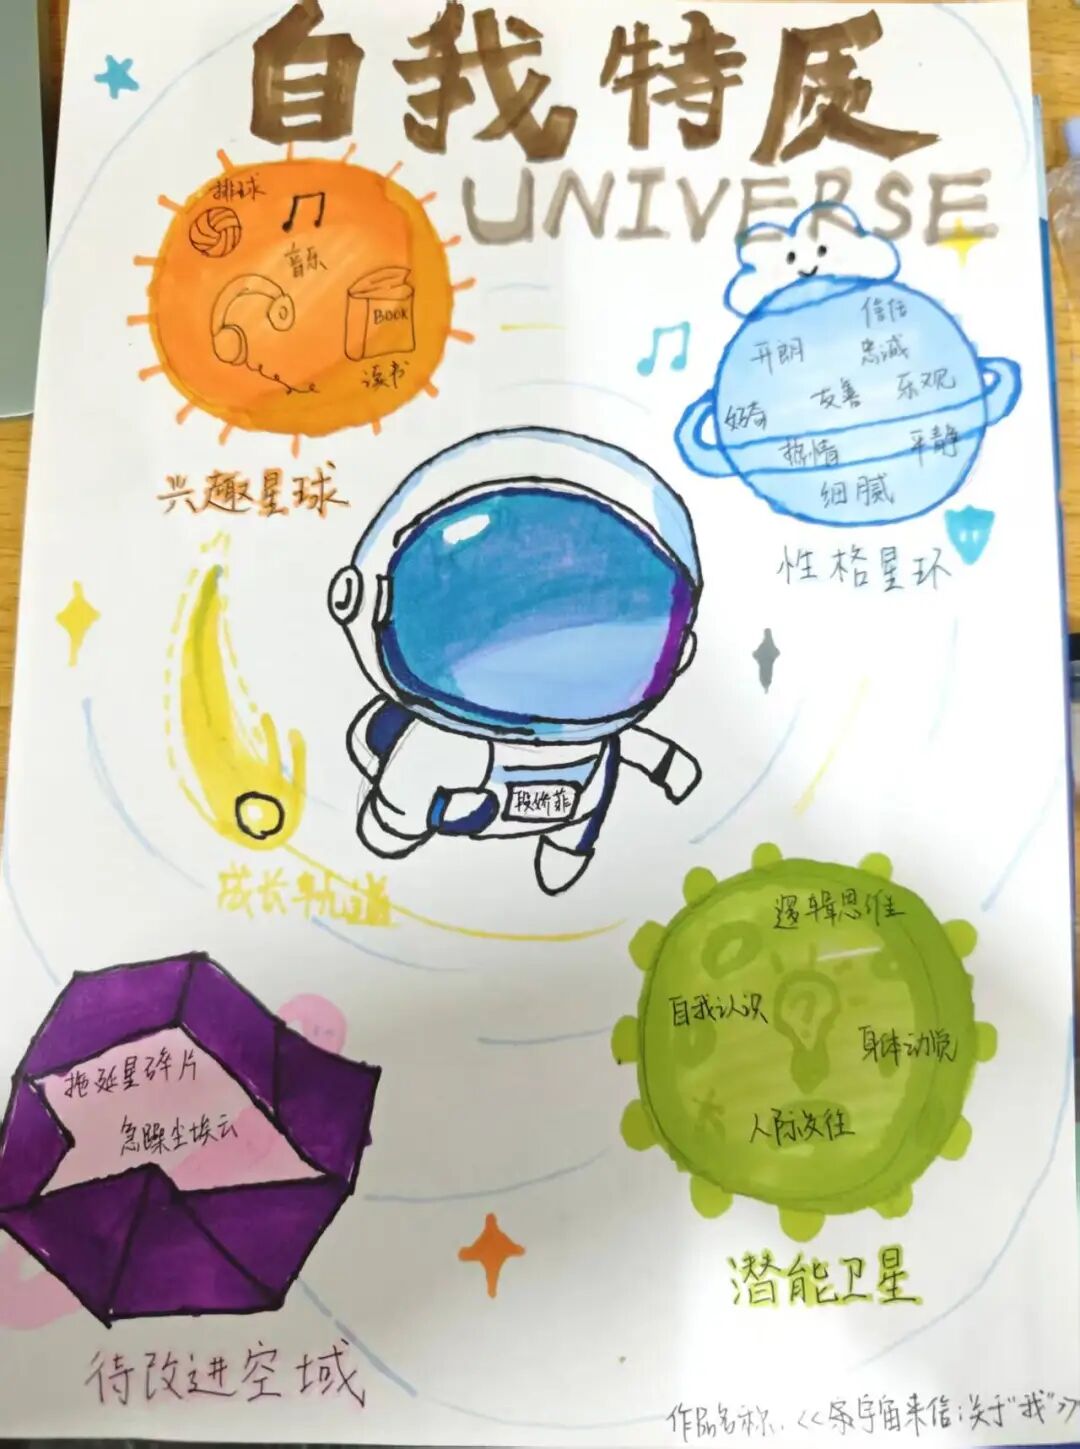 自我特质
UNIVERSE
排球
音乐
BOOK
读书
兴趣星球
信任
开朗
忠诚
友善
乐观
好奇
热情
平静
细腻
性格星环
段娇菲
成长轨道
逻辑思维
自我认识
身体动觉
人际交往
潜能卫星
拖延星碎片
急躁尘埃云
待改进空域
作品名称：<<宇宙来信:关于"我">>